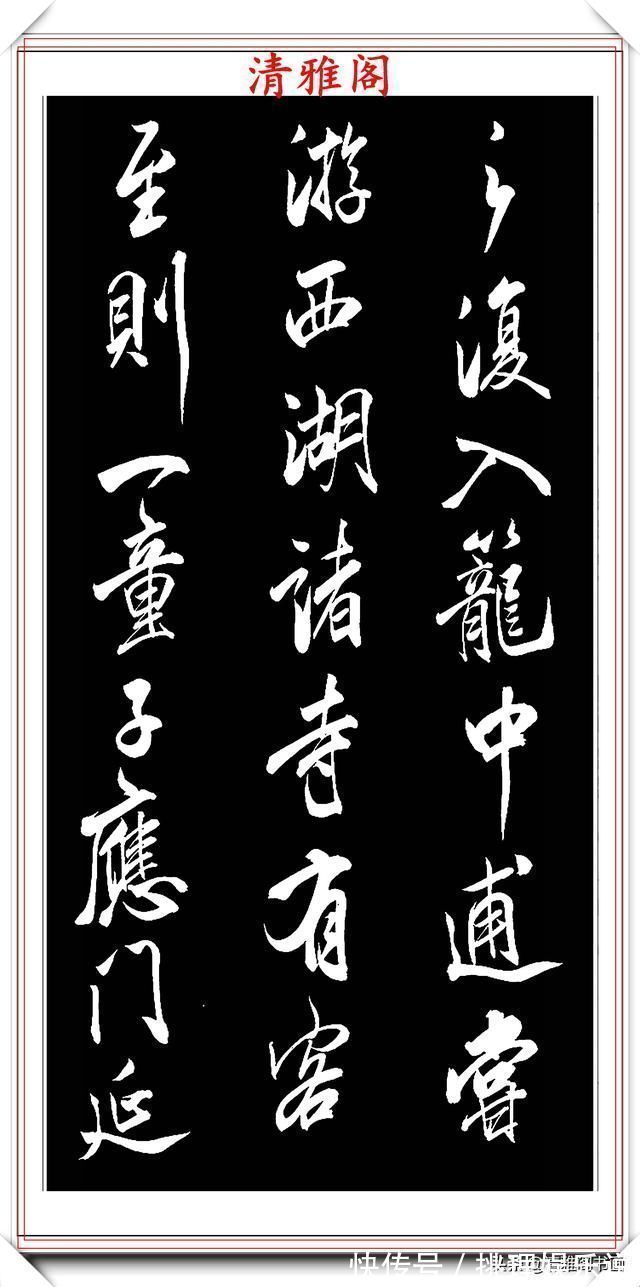 清雅阁
之復入籠中逋嘗
游西湖諸寺有客
至則一童子應门延
快传号 /